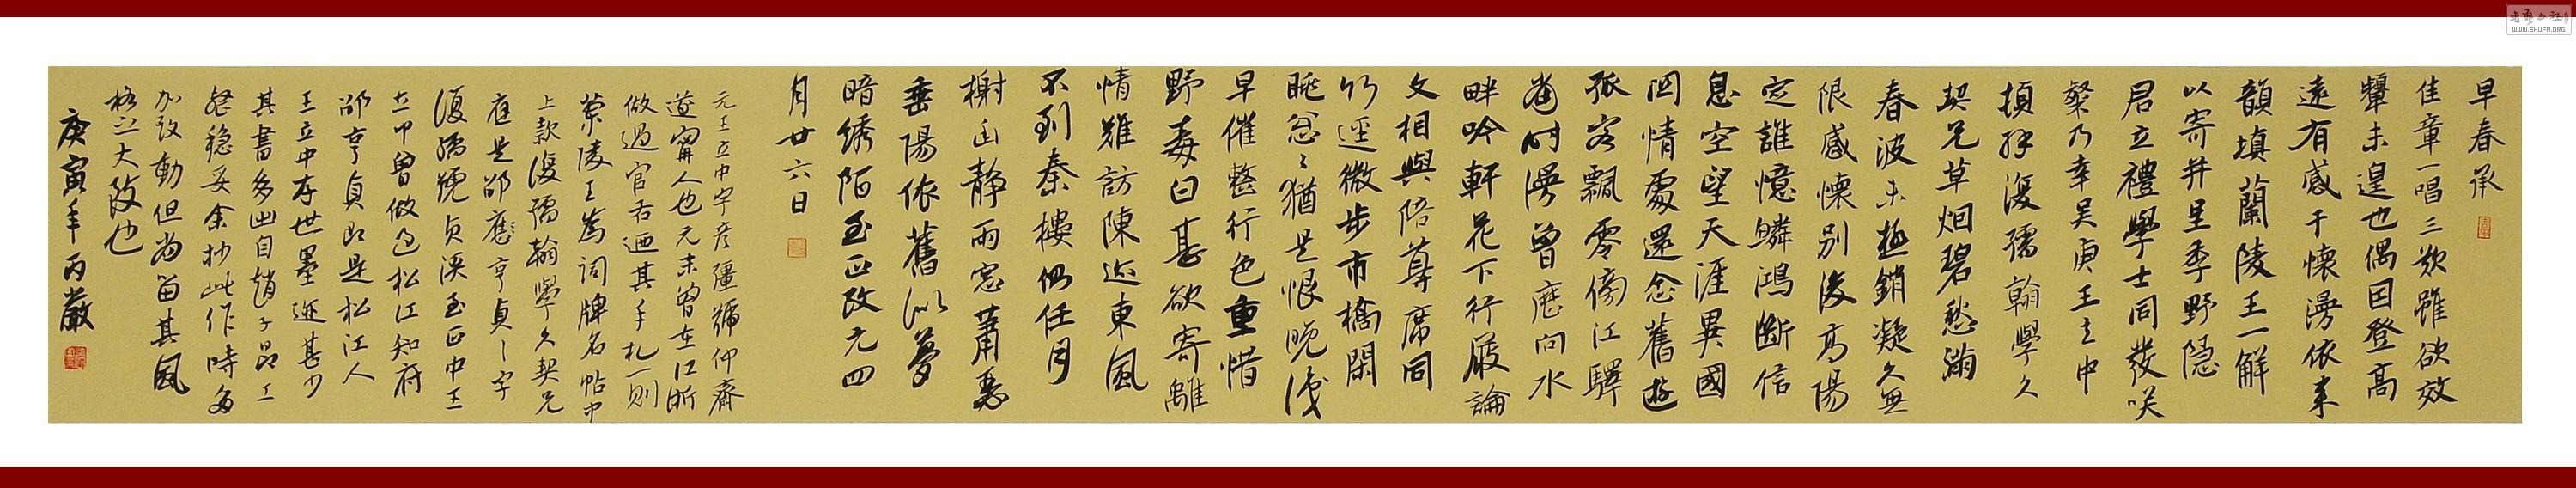 早春承
佳章一唱三歎雖欲效
顰未遑也偶因登高
遠有感于懷漫依來
韻填蘭陵王一解
以寄并呈季野隱
君立禮學士同發咲
粲乃幸吳庚王立中
頓拜復孺翰學久
契兄草烟碧愁滿
春波未極銷凝久無
限感懷別後高陽
定誰憶鱗鴻斷信
息空望天涯異國
関情處還念舊遊
孤客飄零傍江驛
當時漫曾歷向水
畔吟軒花下行屐論
文相與陪尊席同
竹逕微步市橋閑
眺忩々猶是恨晚淺
早催整行色重惜
野毒曰甚欲寄離
情難訪陳迹東風
不到秦樓仍任月
榭幽靜雨窓蕭瑟
垂陽依舊似夢
暗綉陌至正改元四
月廿六日
元王立中字彦彊號仲齋
遂甯人也元末曾在江浙
做過官右迺其手札一則
蘭陵王為詞牌名帖中
上款復孺翰學久契兄
庭是邵應亨貞亨貞字
復孺號貞溪至正中王
立中曾做過松江知府
邵亨貞即是松江人
王立中存世墨迹甚少
其書多出自趙子昂工
整穩妥余抄此作時多
加改動但尚留其風
格之大致也
庚寅年丙嚴
WWW.SHUFA.ORG